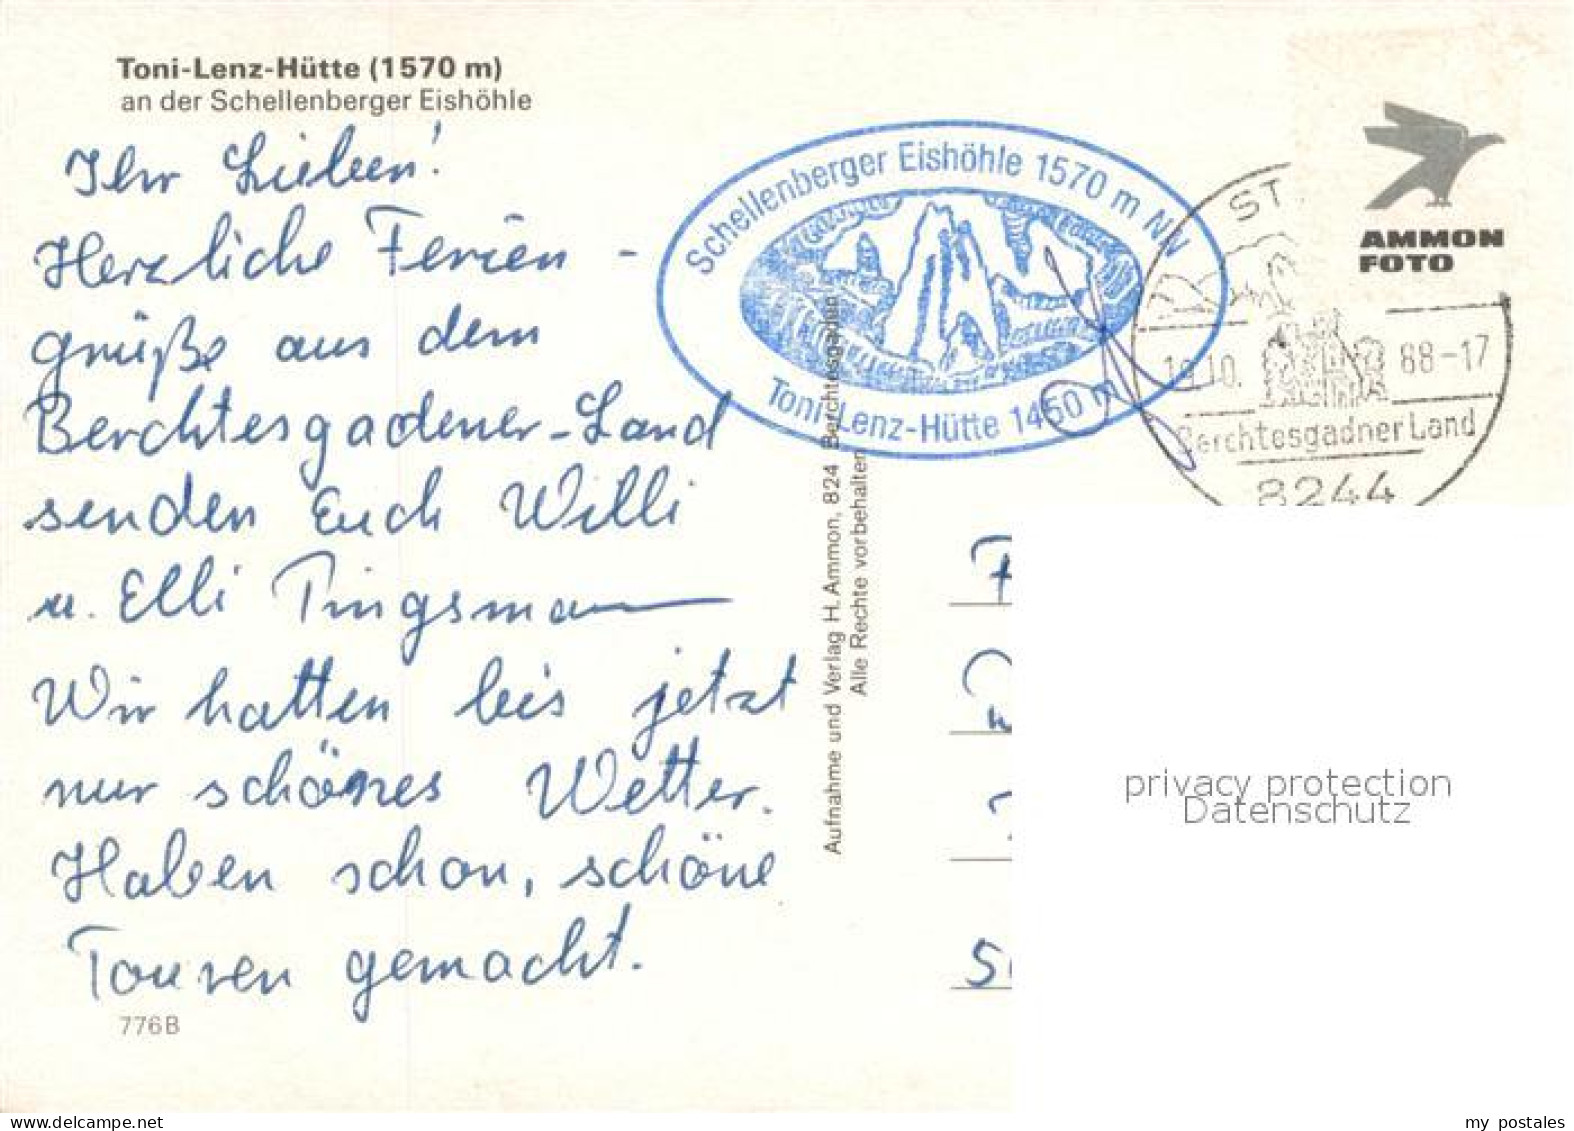 Toni-Lenz-Hütte (1570 m)
an der Schellenberger Eishöhle
Ihr Lieben!
Herzliche Ferien -
grüße aus dem
Berchtesgadener-Land
senden Euch Willi
u. Elli Tingsmann
Wir hatten bis jetzt
nur schönes Wetter.
Haben schon, schöne
Touren gemacht.
776B
Schellenberger Eishöhle 1570 m NN
Toni-Lenz-Hütte 1450 m
Aufnahme und Verlag H. Ammon, 824 Berchtesgaden
Alle Rechte vorbehalten
AMMON
FOTO
ST
10. 88-17
Berchtesgadner Land
8244
privacy protection
Datenschutz
my postales